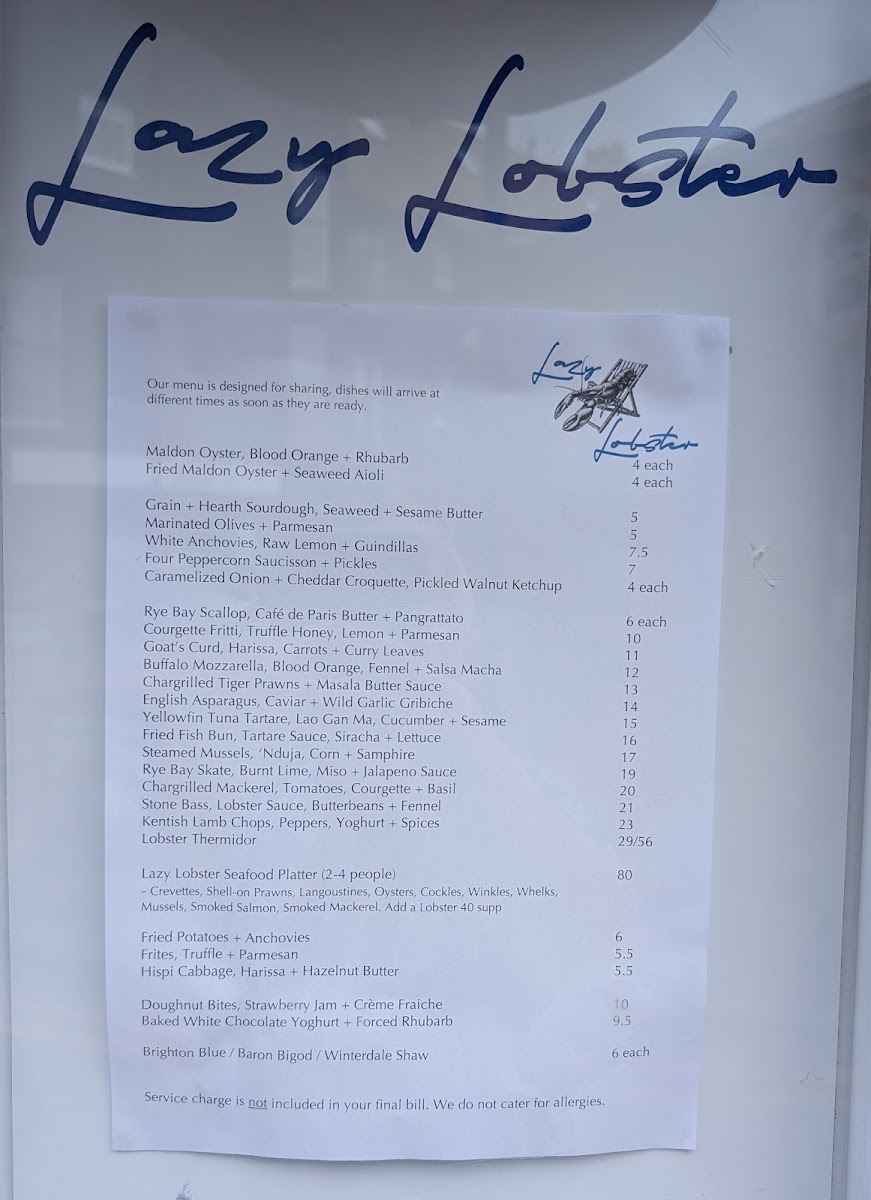 Lazy Lobster
Lazy
Lobster
Our menu is designed for sharing, dishes will arrive at
different times as soon as they are ready.
Maldon Oyster, Blood Orange + Rhubarb 4 each
Fried Maldon Oyster + Seaweed Aioli 4 each
Grain + Hearth Sourdough, Seaweed + Sesame Butter 5
Marinated Olives + Parmesan 5
White Anchovies, Raw Lemon + Guindillas 7.5
Four Peppercorn Saucisson + Pickles 7
Caramelized Onion + Cheddar Croquette, Pickled Walnut Ketchup 4 each
Rye Bay Scallop, Café de Paris Butter + Pangrattato 6 each
Courgette Fritti, Truffle Honey, Lemon + Parmesan 10
Goat's Curd, Harissa, Carrots + Curry Leaves 11
Buffalo Mozzarella, Blood Orange, Fennel + Salsa Macha 12
Chargrilled Tiger Prawns + Masala Butter Sauce 13
English Asparagus, Caviar + Wild Garlic Gribiche 14
Yellowfin Tuna Tartare, Lao Gan Ma, Cucumber + Sesame 15
Fried Fish Bun, Tartare Sauce, Siracha + Lettuce 16
Steamed Mussels, 'Nduja, Corn + Samphire 17
Rye Bay Skate, Burnt Lime, Miso + Jalapeno Sauce 19
Chargrilled Mackerel, Tomatoes, Courgette + Basil 20
Stone Bass, Lobster Sauce, Butterbeans + Fennel 21
Kentish Lamb Chops, Peppers, Yoghurt + Spices 23
Lobster Thermidor 29/56
Lazy Lobster Seafood Platter (2-4 people) 80
- Crevettes, Shell-on Prawns, Langoustines, Oysters, Cockles, Winkles, Whelks,
Mussels, Smoked Salmon, Smoked Mackerel. Add a Lobster 40 supp
Fried Potatoes + Anchovies 6
Frites, Truffle + Parmesan 5.5
Hispi Cabbage, Harissa + Hazelnut Butter 5.5
Doughnut Bites, Strawberry Jam + Crème Fraiche 10
Baked White Chocolate Yoghurt + Forced Rhubarb 9.5
Brighton Blue / Baron Bigod / Winterdale Shaw 6 each
Service charge is not included in your final bill. We do not cater for allergies.